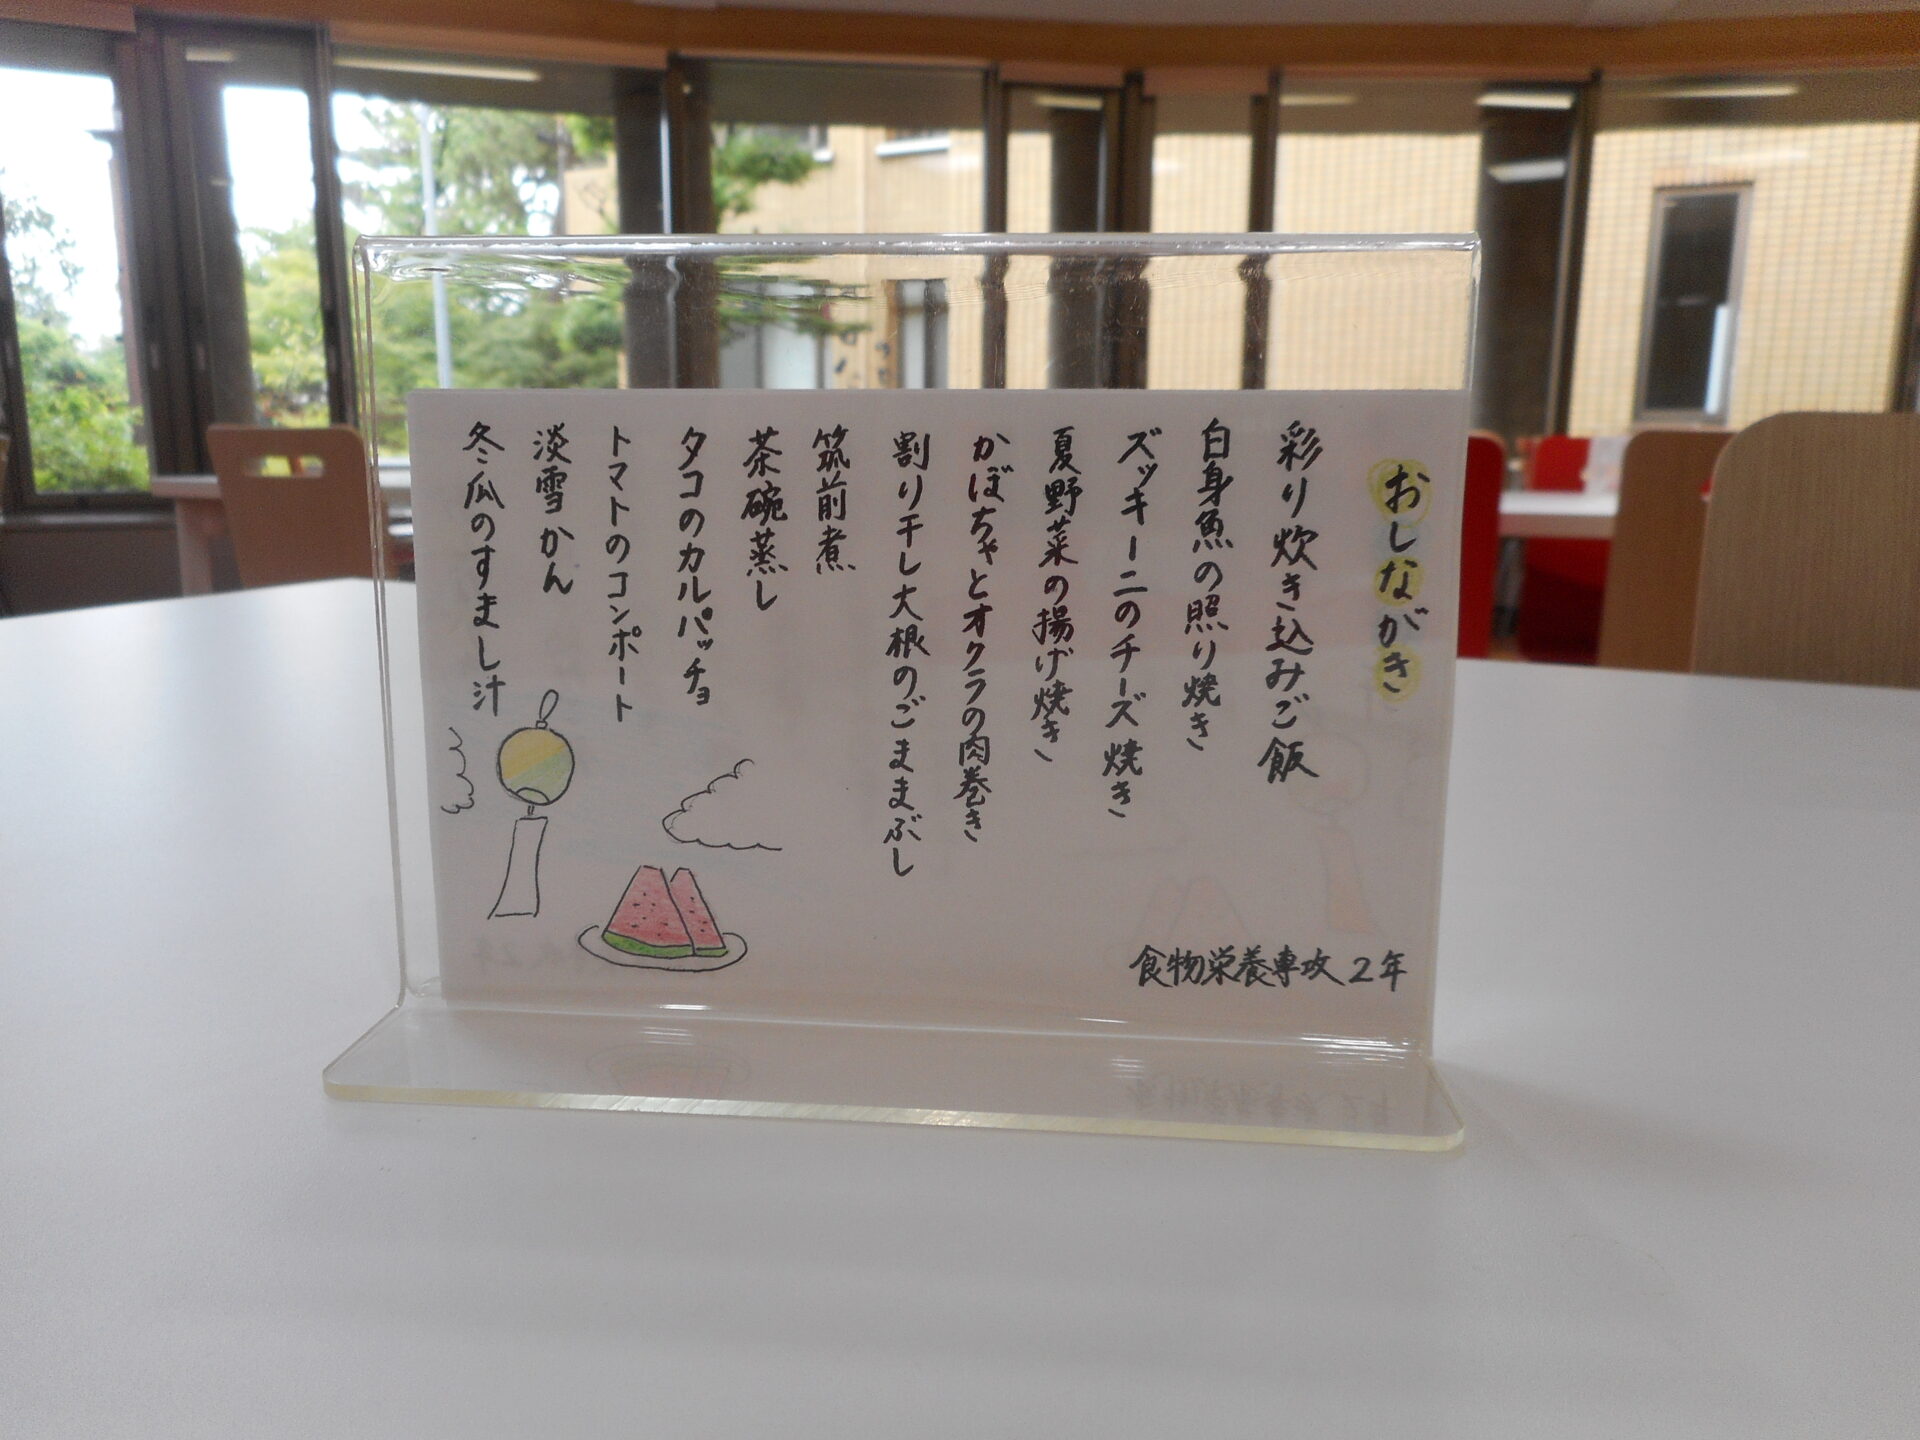 おしながき
彩り炊き込みご飯
白身魚の照り焼き
ズッキーニのチーズ焼き
夏野菜の揚げ焼き
かぼちゃとオクラの肉巻き
割り干し大根のごままぶし
筑前煮
茶碗蒸し
タコのカルパッチョ
トマトのコンポート
淡雪かん
冬瓜のすまし汁
食物栄養専攻2年